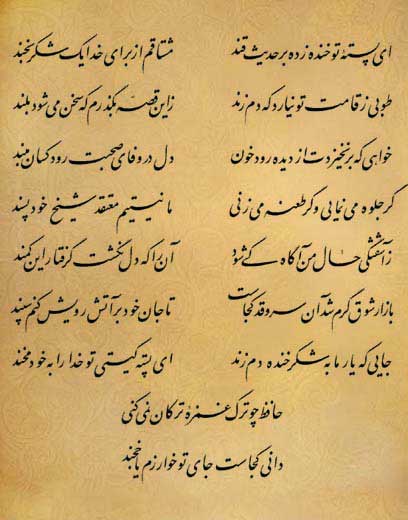 ای پستهٔ تو خنده زده بر حدیث قند مشتاقم از برای خدا یک شکر بخند
طوبی ز قامت تو نیارد که دم زند زاین قصه بگذرم که سخن می شود بلند
خواهی که برنخیزدت از دیده رود خون دل در وفای صحبت رود کسان مبند
گر جلوه می نمایی و گر طعنه می زنی ما نیستیم معتقد شیخ خودپسند
ز آشفتگی حال من آگاه کی شود آن را که دل نگشت گرفتار این کمند
بازار شوق گرم شد آن سروقد کجاست تا جان خود بر آتش رویش کنم سپند
جایی که یار ما به شکر خنده دم زند ای پسته کیستی تو خدا را به خود مخند
حافظ چو ترک غمزه ترکان نمی کنی
دانی کجاست جای تو خوارزم یا خجند